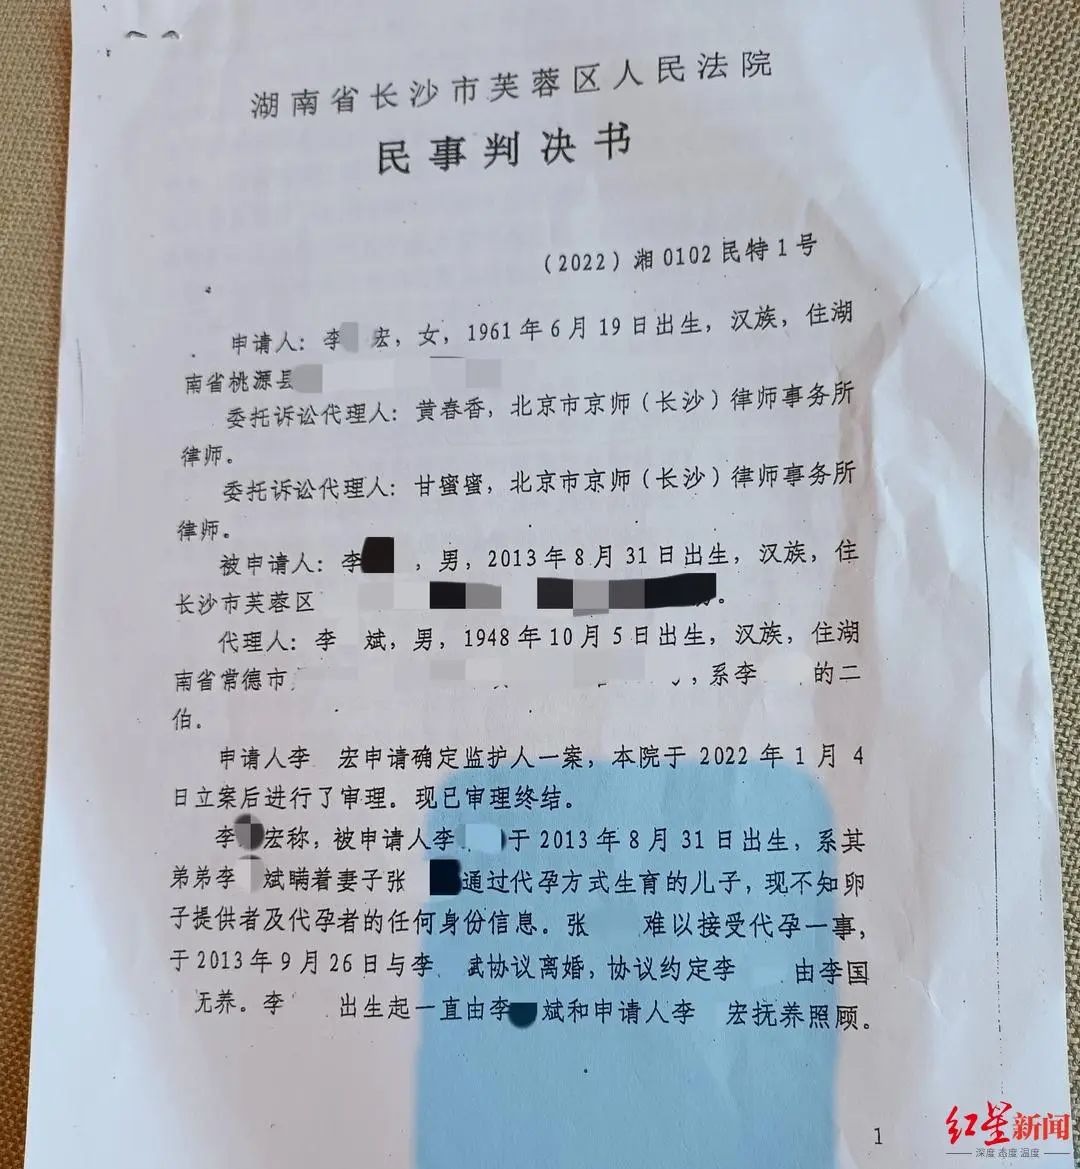 湖南省长沙市芙蓉区人民法院
民事判决书
（2022）湘0102民特1号
申请人：李 宏，女，1961年6月19日出生，汉族，住湖
南省桃源县
委托诉讼代理人：黄春香，北京市京师（长沙）律师事务所
律师。
委托诉讼代理人：甘蜜蜜，北京市京师（长沙）律师事务所
律师。
被申请人：李 ，男，2013年8月31日出生，汉族，住
长沙市芙蓉区 。
代理人：李 斌，男，1948年10月5日出生，汉族，住湖
南省常德市 ，系李 的二
伯。
申请人李 宏申请确定监护人一案，本院于2022年1月4
日立案后进行了审理。现已审理终结。
李 宏称，被申请人李 于2013年8月31日出生，系其
弟弟李 斌瞒着妻子张 通过代孕方式生育的儿子，现不知卵
子提供者及代孕者的任何身份信息。张 难以接受代孕一事，
于2013年9月26日与李 斌协议离婚，协议约定李 由李国
养。李 出生起一直由李 斌和申请人李 宏抚养照顾。
1
红星新闻
深度 态度 温度